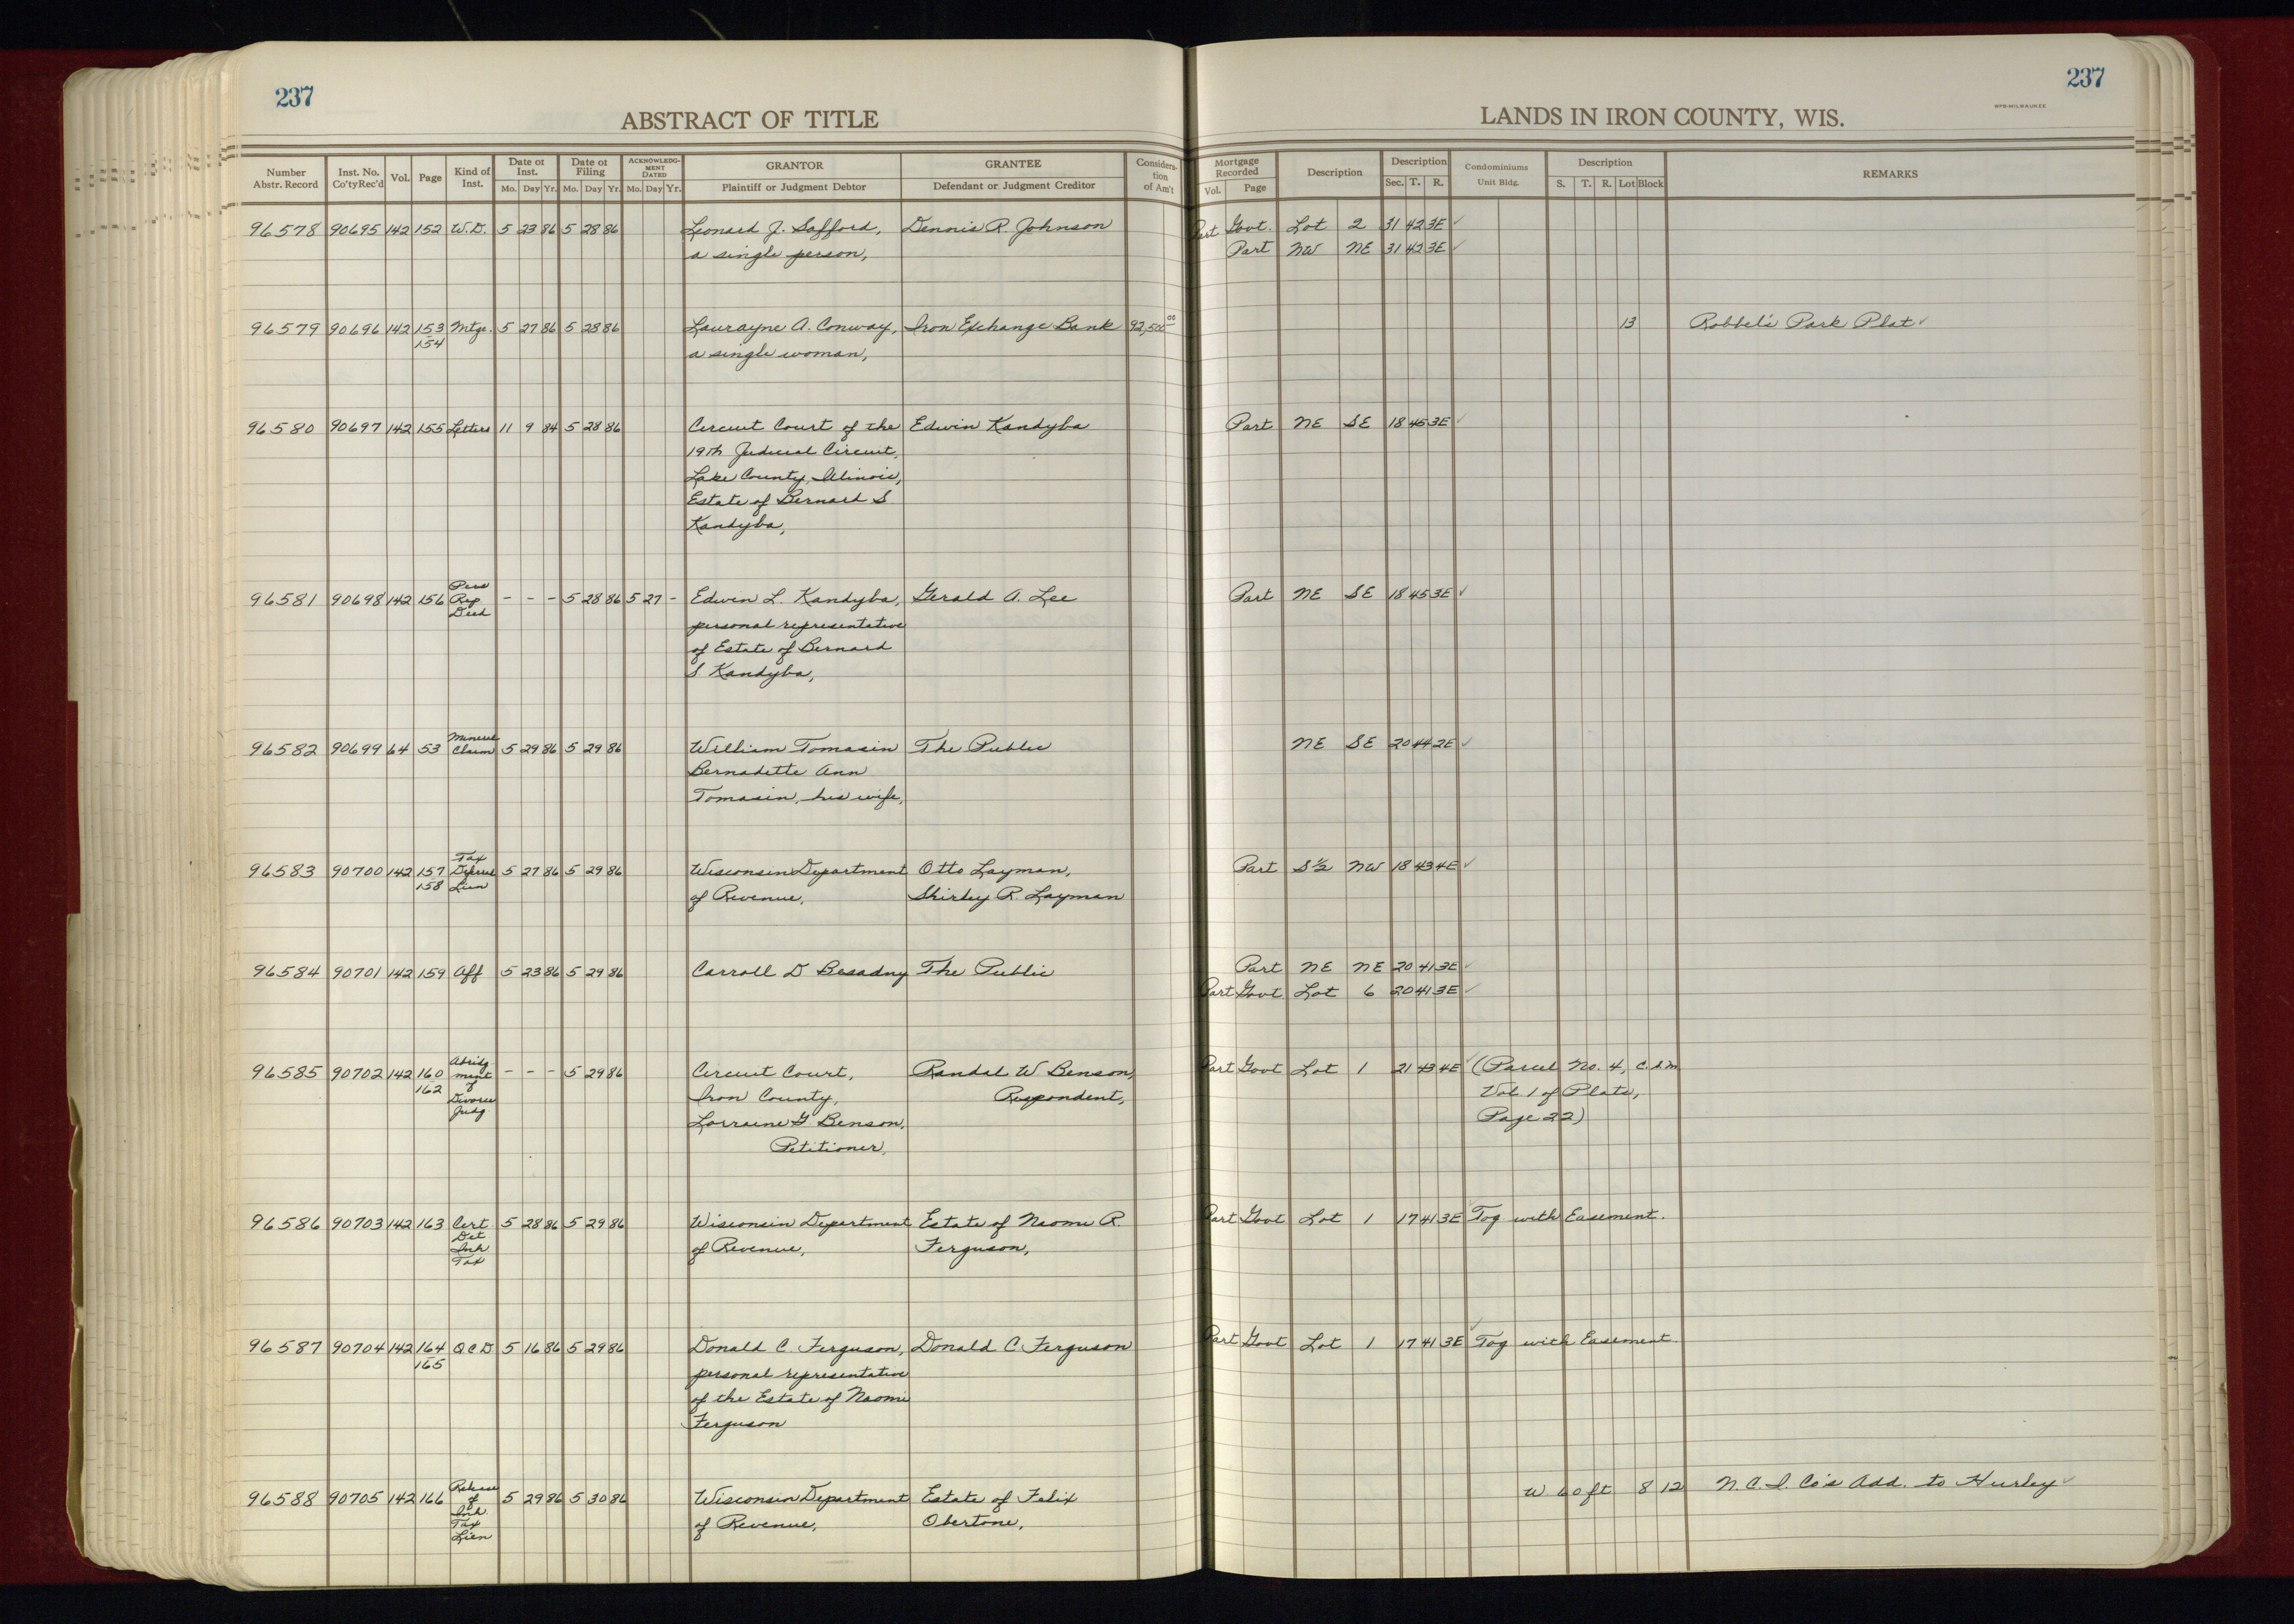 237
ABSTRACT OF TITLE
Number Abstr. Record | Inst. No. Co'ty Rec'd | Vol. | Page | Kind of Inst. | Date of Inst. Mo. Day Yr. | Date of Filing Mo. Day Yr. | ACKNOWLEDGMENT DATED Mo. Day Yr. | GRANTOR Plaintiff or Judgment Debtor | GRANTEE Defendant or Judgment Creditor | Consideration of Am't
237
WPB-MILWAUKEE
LANDS IN IRON COUNTY, WIS.
Mortgage Recorded Vol. Page | Description | Description Sec. T. R. | Condominiums Unit Bldg. | Description S. T. R. Lot Block | REMARKS
96578 90695 142 152 W.D. 5 23 86 5 28 86 Leonard J. Safford, Dennis R. Johnson Part Govt. Lot 2 31 42 3E ✓
a single person, Part NW NE 31 42 3E ✓
96579 90696 142 153 Mtge. 5 27 86 5 28 86 Laurayne A. Conway, Iron Exchange Bank 92,500 00 13 Robbel's Park Plat ✓
154 a single woman,
96580 90697 142 155 Letters 11 9 84 5 28 86 Circuit Court of the Edwin Kandyba Part NE SE 18 45 3E ✓
19th Judicial Circuit,
Lake County, Illinois,
Estate of Bernard S.
Kandyba,
Pers
96581 90698 142 156 Rep - - - 5 28 86 5 27 - Edwin L. Kandyba, Gerald A. Lee Part NE SE 18 45 3E ✓
Deed
personal representative
of Estate of Bernard
S Kandyba,
Mineral
96582 90699 64 53 Claim 5 29 86 5 29 86 William Tomasin The Public NE SE 20 44 2E ✓
Bernadette Ann
Tomasin, his wife,
Tax
96583 90700 142 157 5 27 86 5 29 86 Wisconsin Department Otto Layman, Part S½ NW 18 43 4E ✓
158 Lien
of Revenue, Shirley R. Layman
96584 90701 142 159 Aff 5 23 86 5 29 86 Carroll D Besadny The Public Part NE NE 20 41 3E ✓
Part Govt Lot 6 20 41 3E ✓
Abridg
96585 90702 142 160 ment - - - 5 29 86 Circuit Court, Randal W. Benson, Part Govt Lot 1 21 43 4E ✓ (Parcel No. 4, C.S.M.
162 of Iron County, Respondent, Vol 1 of Plats,
Divorce Lorraine G Benson, Page 22)
Judg
Petitioner,
96586 90703 142 163 Cert 5 28 86 5 29 86 Wisconsin Department Estate of Naomi R. Part Govt Lot 1 17 41 3E ✓ Tog with Easement.
Det of Revenue, Ferguson,
Inh
Tax
96587 90704 142 164 QCD 5 16 86 5 29 86 Donald C. Ferguson, Donald C. Ferguson Part Govt Lot 1 17 41 3E ✓ Tog with Easement.
165 personal representative
of the Estate of Naomi
Ferguson
Release
96588 90705 142 166 of 5 29 86 5 30 86 Wisconsin Department Estate of Felix W 60 ft 8 12 N.C.I. Co's Add. to Hurley ✓
Inh.
Tax of Revenue, Obertone,
Lien